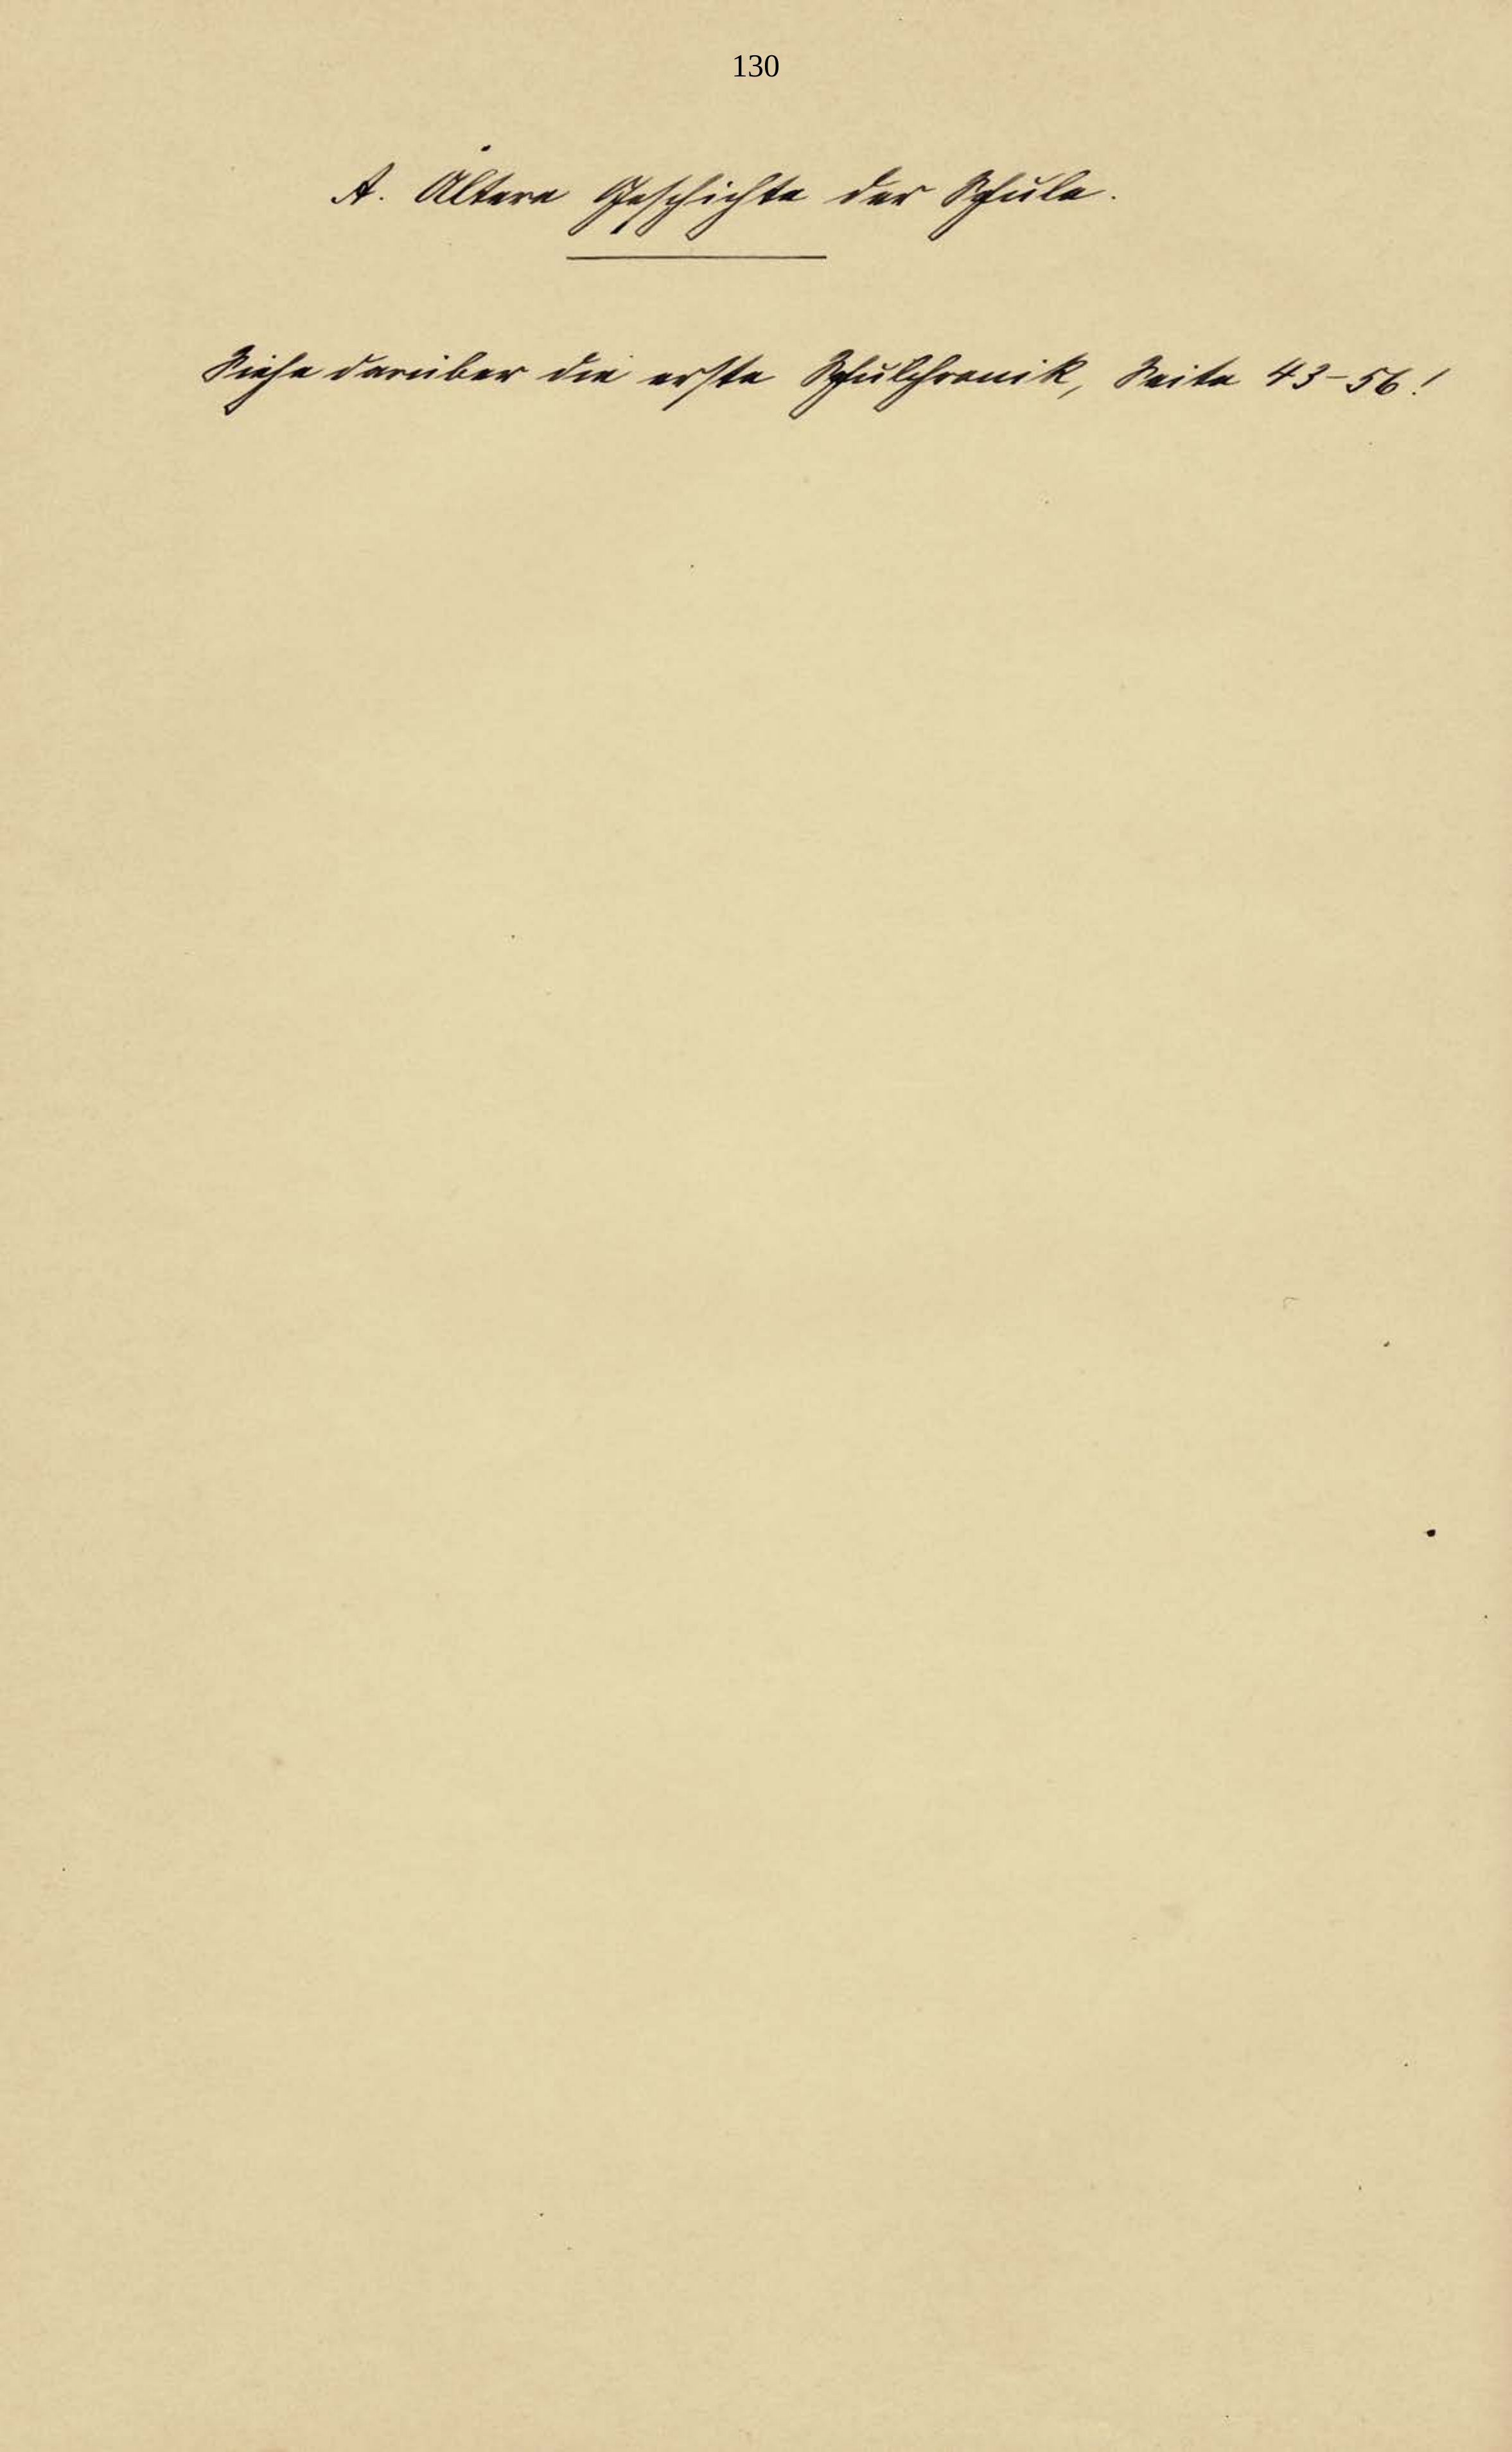 130
A. Ältere Geschichte der Schule.
Siehe darüber die erste Schulchronik, Seite 43-56!